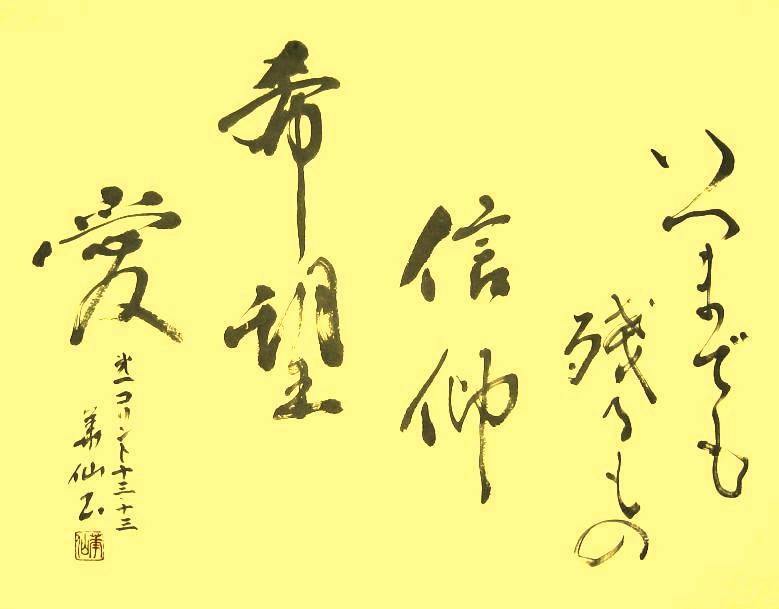 いつまでも
残るもの
信仰
希望
愛
第一コリント十三・十三
華仙